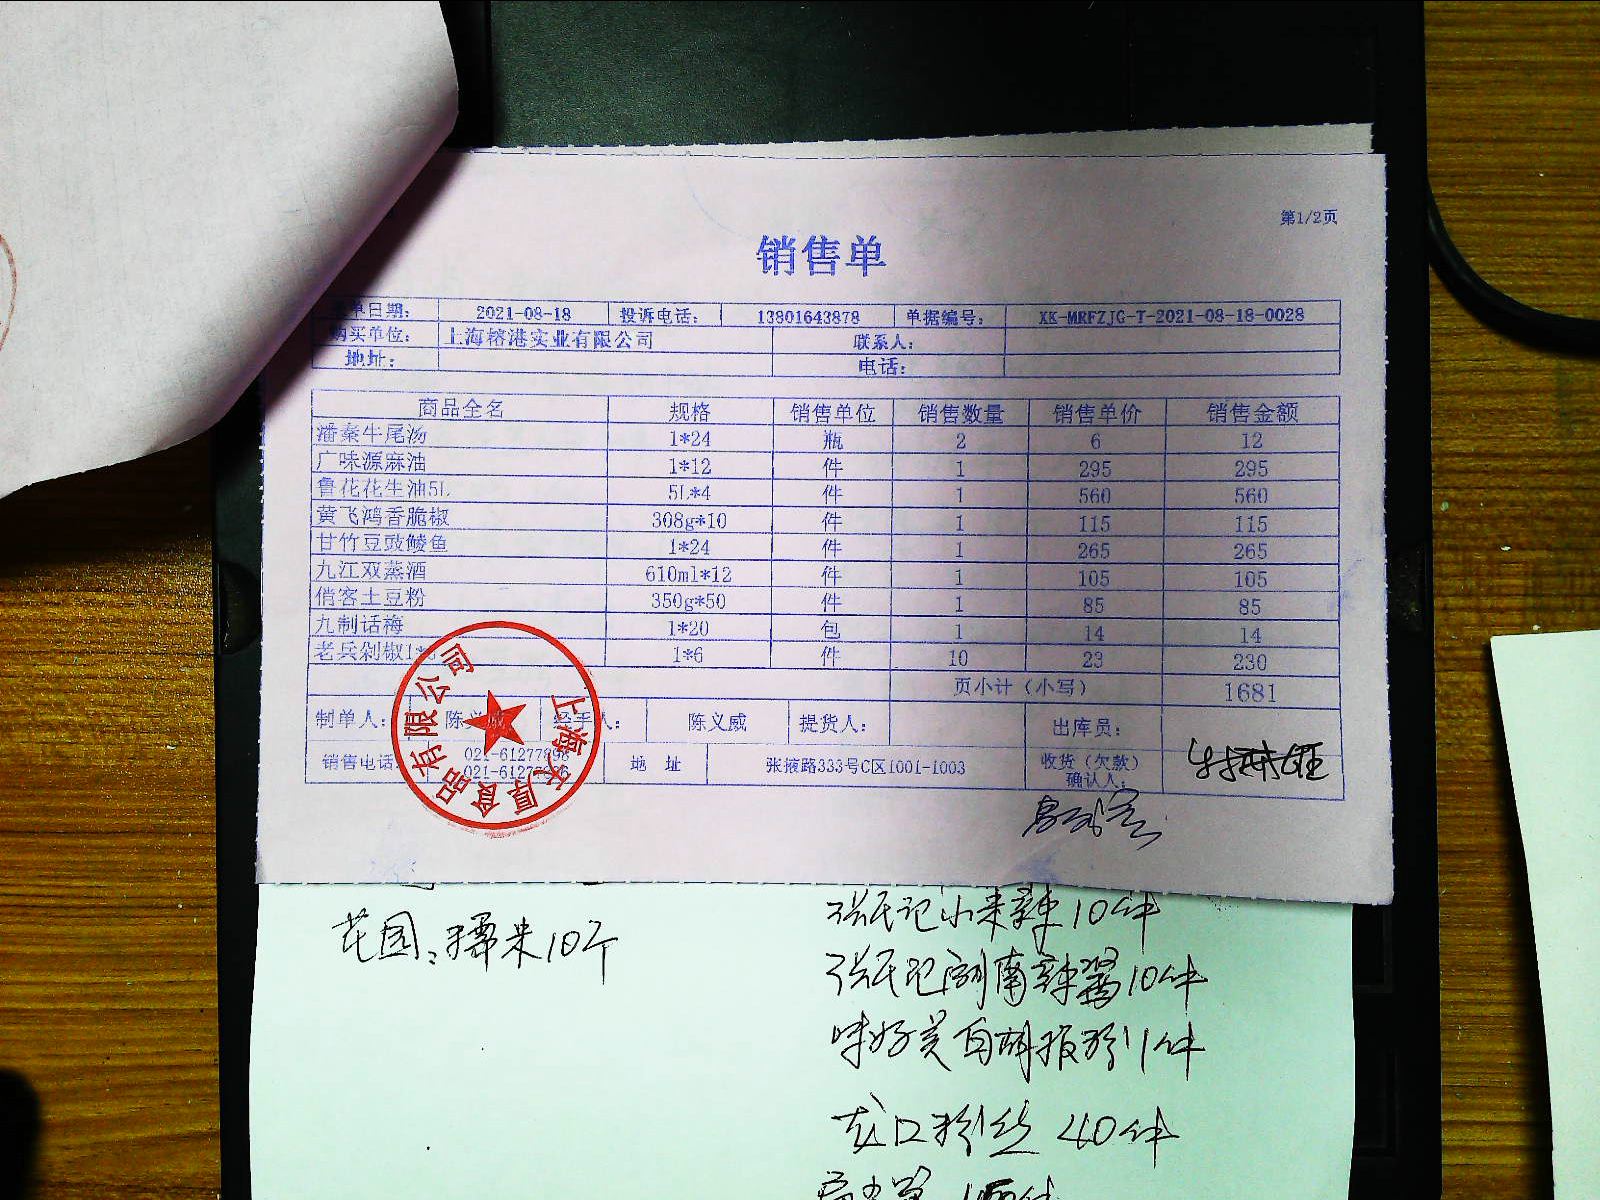 第1/2页
销售单
单日期： 2021-08-18 投诉电话： 13801643878 单据编号： XK-MRFZJG-T-2021-08-18-0028
购买单位： 上海榕港实业有限公司 联系人：
地址： 电话：
商品全名 规格 销售单位 销售数量 销售单价 销售金额
潘秦牛尾汤 1*24 瓶 2 6 12
广味源麻油 1*12 件 1 295 295
鲁花花生油5L 5L*4 件 1 560 560
黄飞鸿香脆椒 308g*10 件 1 115 115
甘竹豆豉鲮鱼 1*24 件 1 265 265
九江双蒸酒 610ml*12 件 1 105 105
俏客土豆粉 350g*50 件 1 85 85
九制话梅 1*20 包 1 14 14
老兵剁椒1* 1*6 件 10 23 230
页小计（小写） 1681
制单人： 陈义威 经手人： 陈义威 提货人： 出库员：
销售电话： 021-61277898 地 址 张掖路333号C区1001-1003 收货（欠款）
021-6127 确认人：
上海天厚食品有限公司
张氏记小米辣10件
花园：糯米10个
张氏记湖南辣酱10件
味好美白胡椒粉1件
龙口粉丝 40件